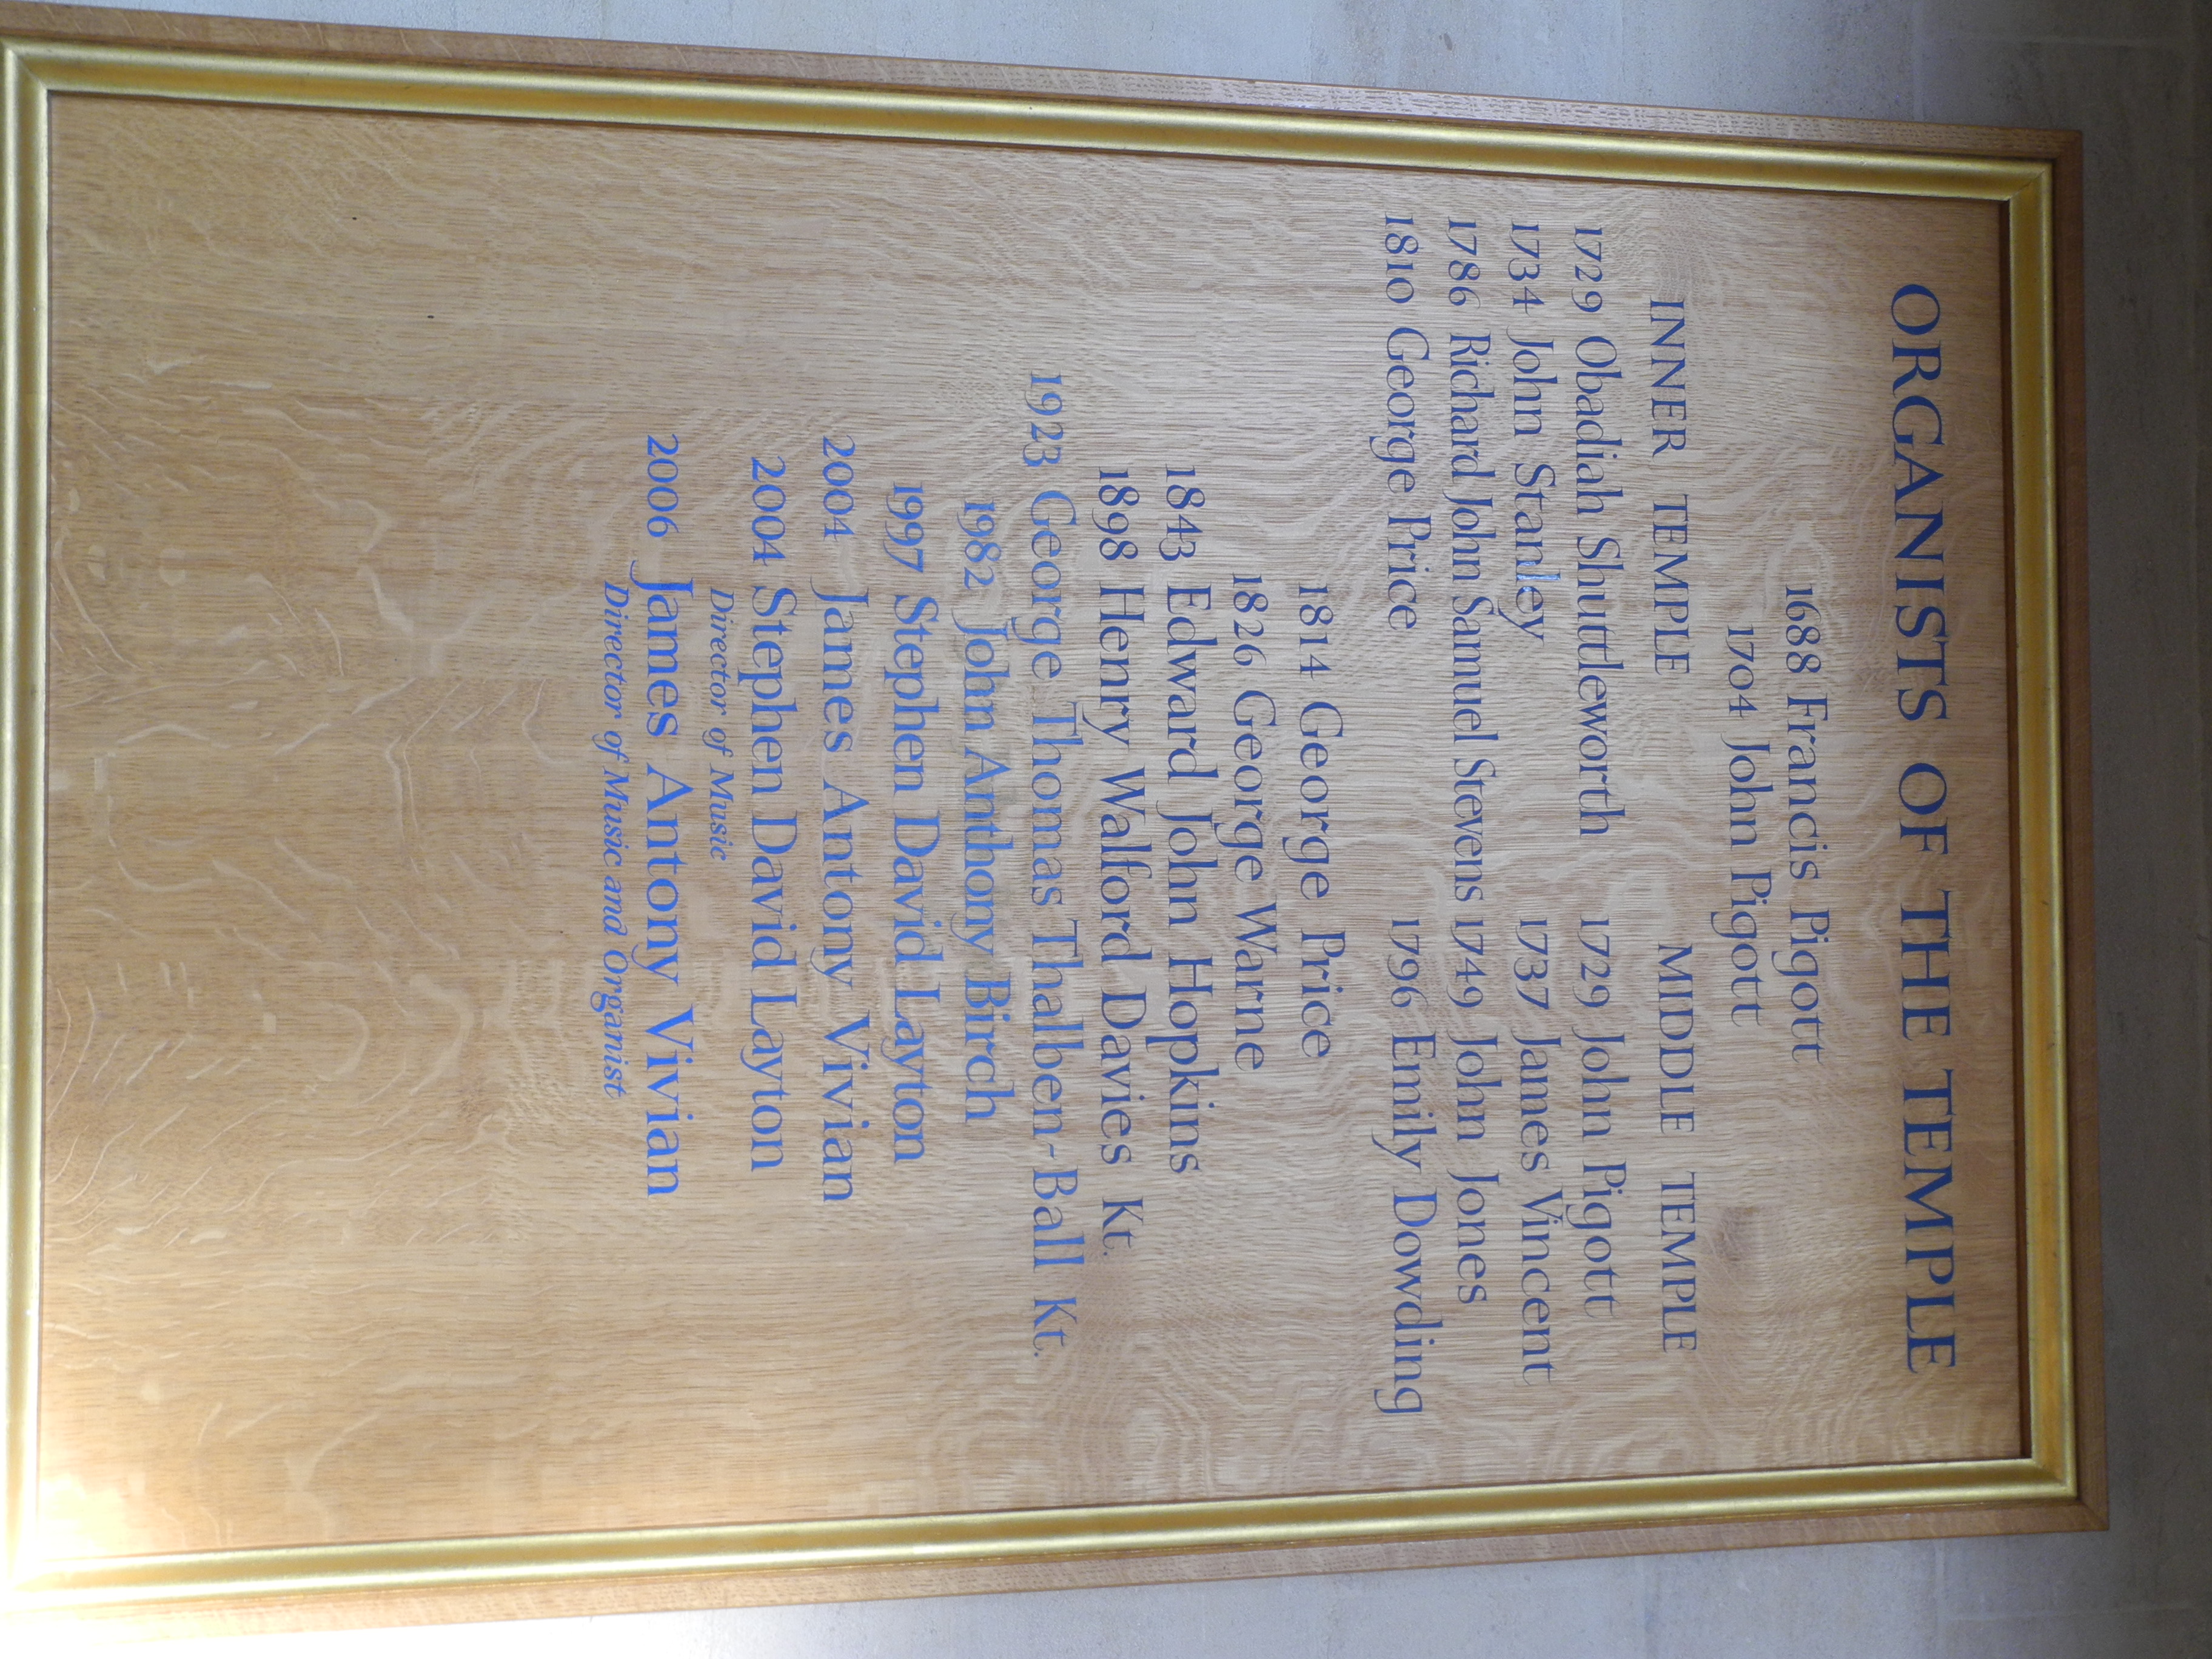 ORGANISTS OF THE TEMPLE
1688 Francis Pigott
1704 John Pigott
INNER TEMPLE MIDDLE TEMPLE
1729 Obadiah Shuttleworth 1729 John Pigott
1734 John Stanley 1737 James Vincent
1786 Richard John Samuel Stevens 1749 John Jones
1810 George Price 1796 Emily Dowding
1814 George Price
1826 George Warne
1843 Edward John Hopkins
1898 Henry Walford Davies Kt.
1923 George Thomas Thalben-Ball Kt.
1982 John Anthony Birch
1997 Stephen David Layton
2004 James Antony Vivian
2004 Stephen David Layton
Director of Music
2006 James Antony Vivian
Director of Music and Organist